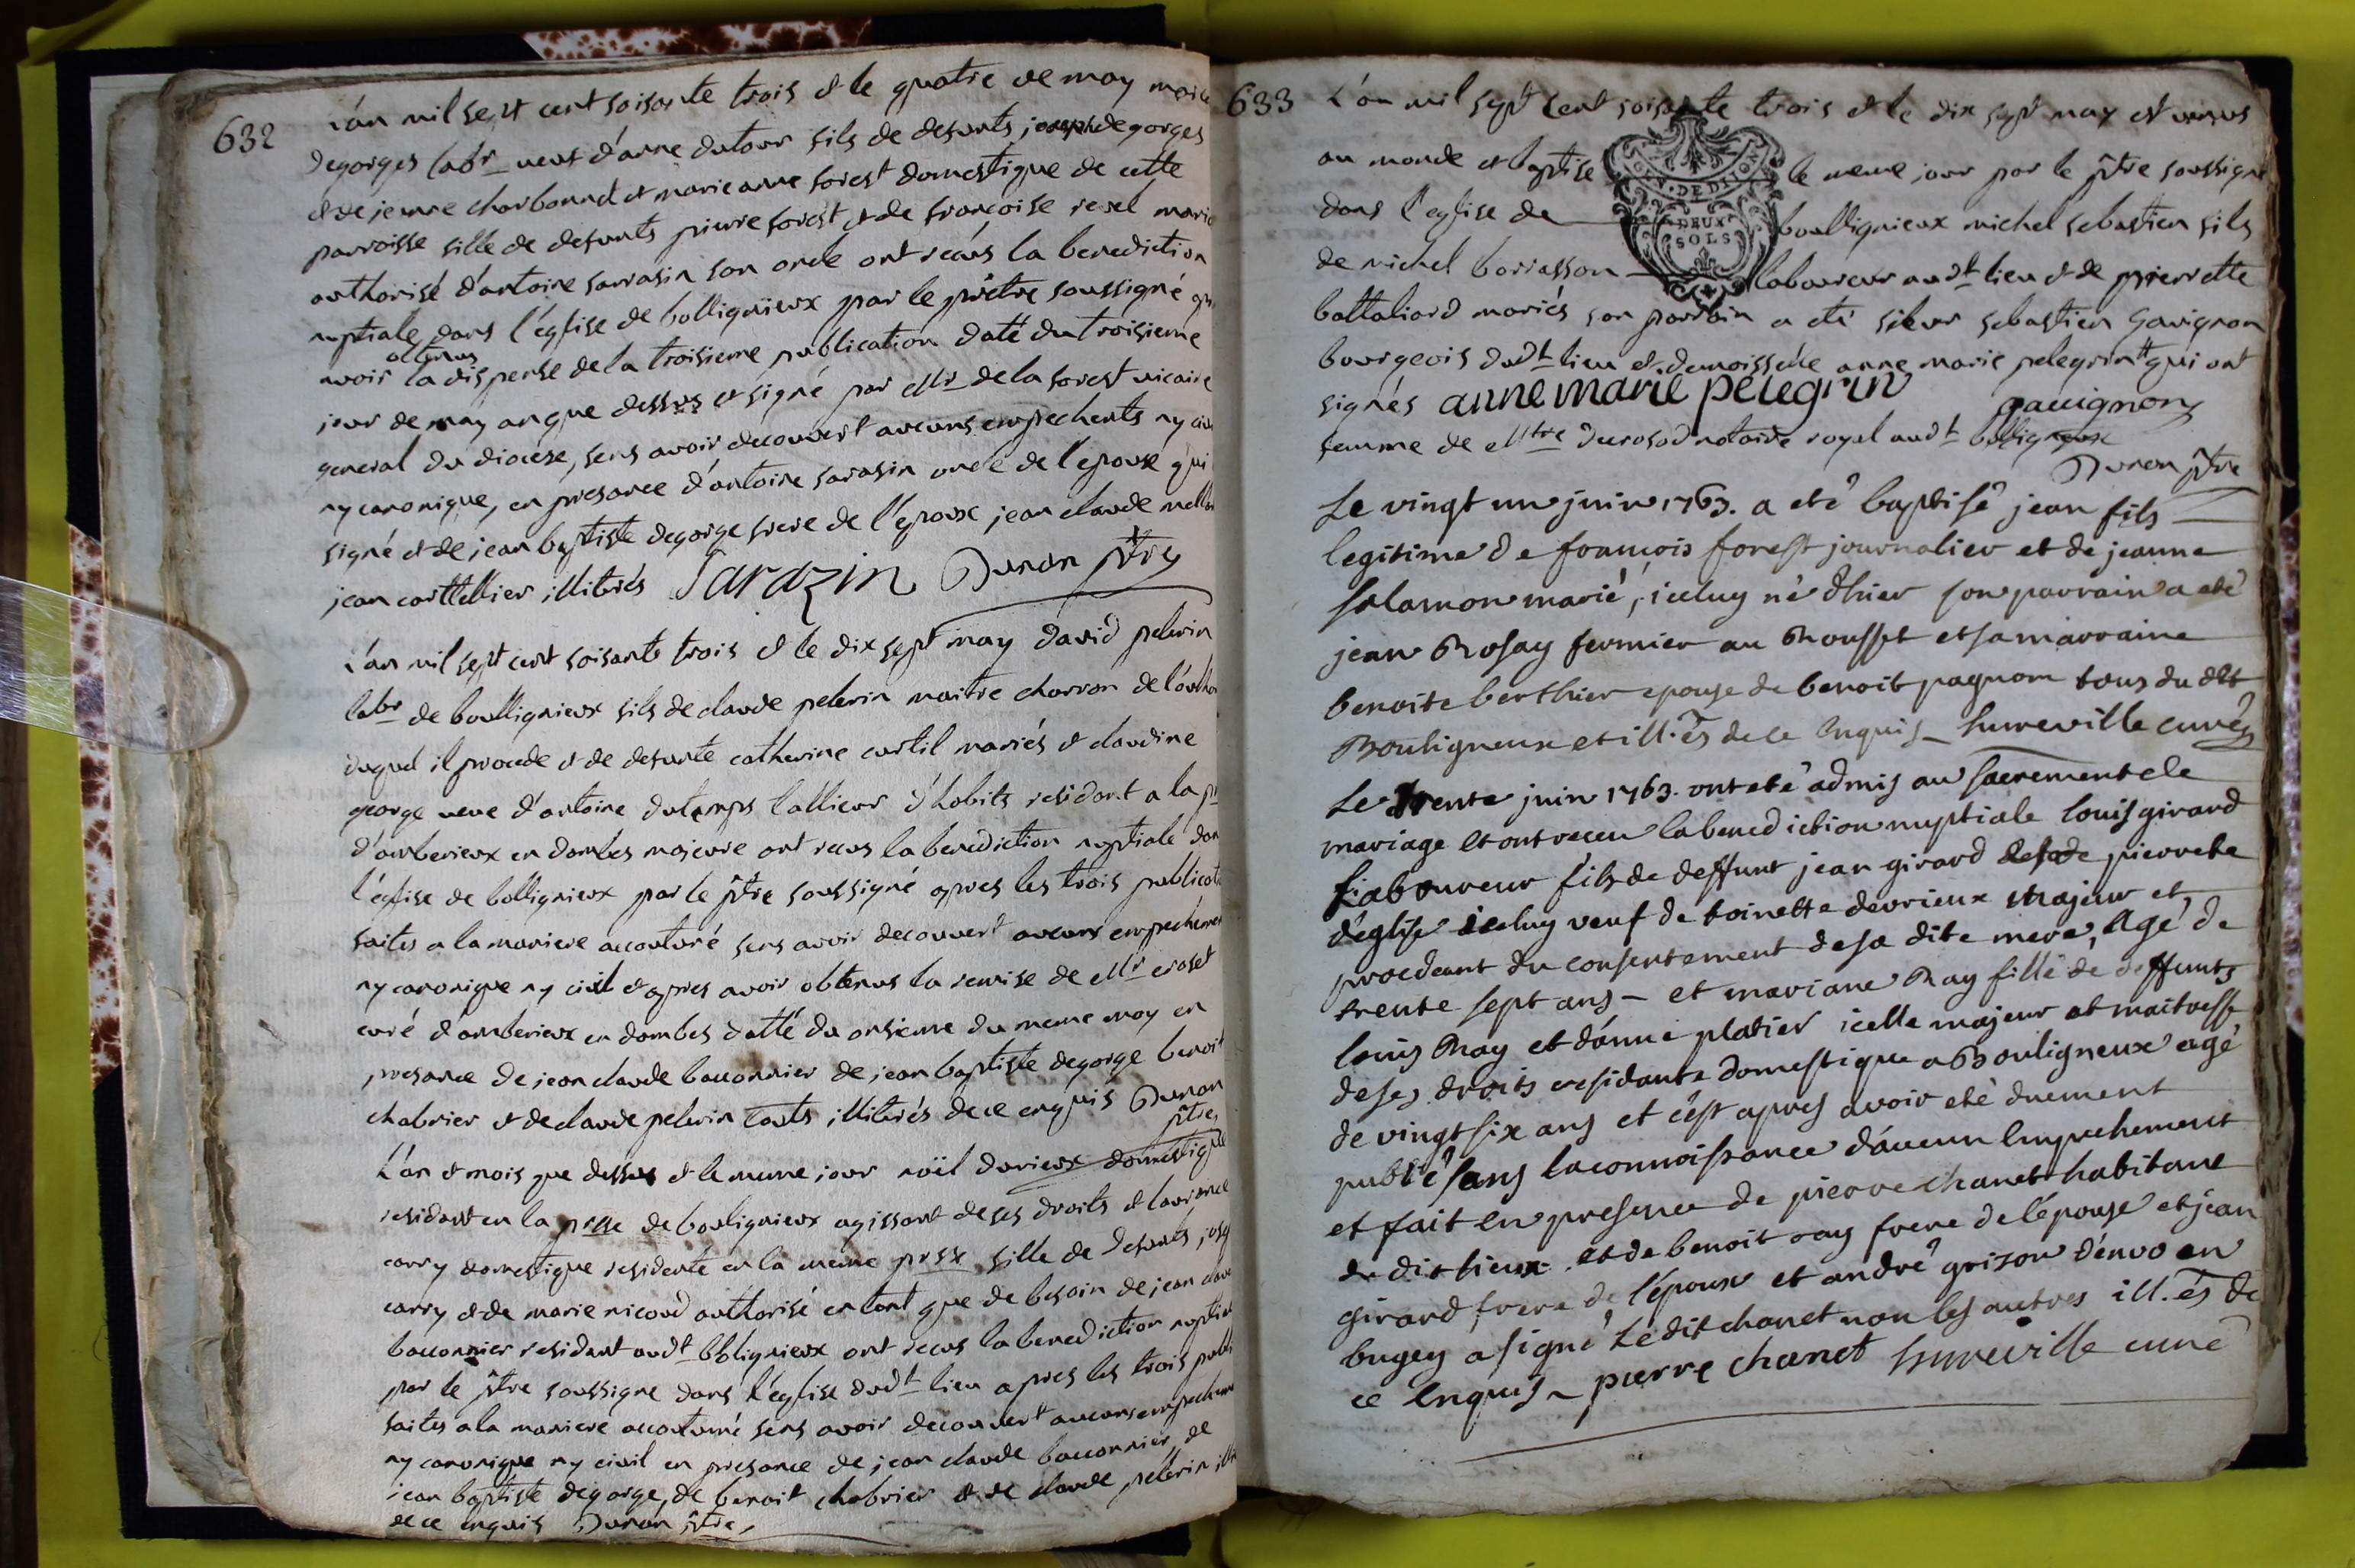 632
L'an mil sept cent soisante trois et le quatre de may
degorges labr veuf d'anne dutour fils de defunts joseph degorges
et de jeanne charbonnet et marie anne forest domestique de cette
parroisse fille de defunts pierre forest et de françoise revel
authorisé d'antoine sarrasin son oncle ont recus la benediction
nuptiale dans l'église de bollignieux par le prêtre soussigné
avoir obtenus la dispense de la troisieme publication daté du troisieme
jour de may an que dessus et signé par Mr de la forest vicaire
general du diocese, sens avoir decouvert aucuns empechents ny
ny canonique, en presance d'antoine sarasin oncle de l'epouse qui
signé et de jean baptiste degorge frere de l'epoux jean claude
jean cottellier illitrés Sarazin Duran ptre
L'an mil sept cent soisante trois et le dix sept may david pelerin
labr de boullignieux fils de claude pelerin maitre charron de
duquel il procede et de defunte catherine curtil mariés et claudine
george veuve d'antoine dutemps tallieur d'habits residant a la
d'amberieux en dombes majeure ont recus la benediction nuptiale dans
l'église de bollignieux par le ptre soussigné apres les trois
faites a la maniere accoutumé sens avoir decouvert aucuns
ny canonique ny civil et apres avoir obtenus la remise de Mr croset
curé d'amberieux en dombes datté du onsieme du meme may en
presance de jean claude bauonnier de jean baptiste degorge benoit
chabrier et de claude pelerin touts illitérés de ce enquis Duran
ptre
L'an et mois que dessus et le meme jour noël durieux domestique
residant en la prsse de boulignieux agissant de ses droits et laurence
carry domestique residente en la meme prsse fille de defunts
carry et de marie nicoud authorisé entant que de besoin de jean
bauonnier residant audt bbolignieux ont recus la benediction
par le ptre soussigne dans l'église dudt lieu apres les trois
faites a la maniere accoutumé sens avoir decouvert aucuns
ny canonique ny civil en presance de jean claude bauonnier, de
jean baptiste degorge, de benoit chabrier et de claude pelerin
de ce enquis Duran ptre
633
L'an mil sept cent soisante trois et le dix sept may est venus
au monde et baptise le meme jour par le ptre soussigné
GEN. DE DIJON
DEUX
SOLS
dans l'eglise de boullignieux michel sebastien fils
de michel borrasson laboureur audt lieu et de pierrette
battaliard mariés son parrain a eté sieur sebastien Gavignon
bourgeois dudt lieu et demoiselle anne marie pelegrin qui ont
signés anne marie pelegrin gavignon
femme de Mtre ducrosod notaire royal audt bollignieux
Duran ptre
Le vingt un juin 1763. a eté baptisé jean fils
legitime de francois forest journalier et de jeanne
salamon marié, iceluy né d'hier son parrain a eté
jean Rosay fermier au Rousset et sa marraine
benoite berthier epouse de benoit pagnom tous du dit
Bouligneux et ill.és de ce Enquis
Le trente juin 1763. ont eté admis au sacrement de
mariage et ont receu la benediction nuptiale louis girard
Laboureur fils de deffunt jean girard pierrete
d'eglise iceluy veuf de toinette devrieux Majeur et
procdeant du consentement de sa dite mere, Agé de
trente sept ans – et mariane Ray fille de deffunts
louis Ray et d'anne platier icelle majeur et maitresse
de ses droits residante domestique a Bouligneux agé
de vingt six ans et c'est apres avoir eté duement
publié sans la connoissance d'aucun Empechement
et fait en presence de pierre chanet habitant
du dit lieux et de benoit ray frere de l'épouse et jean
girard frere de l'époux et andré grison en
bugey a signé Le dit chanet non les autres ill.és de
ce Enquis – pierre chanet curé